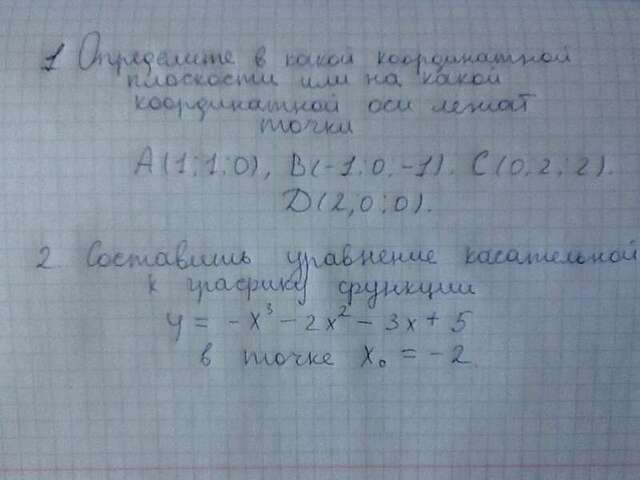 1 Определите в какой координатной
плоскости или на какой
координатной оси лежат
точки
A(1;1;0), B(-1;0;-1). C(0;2;2).
D(2;0;0).
2. Составить уравнение касательной
к графику функции
y = -x³ - 2x² - 3x + 5
в точке x₀ = -2